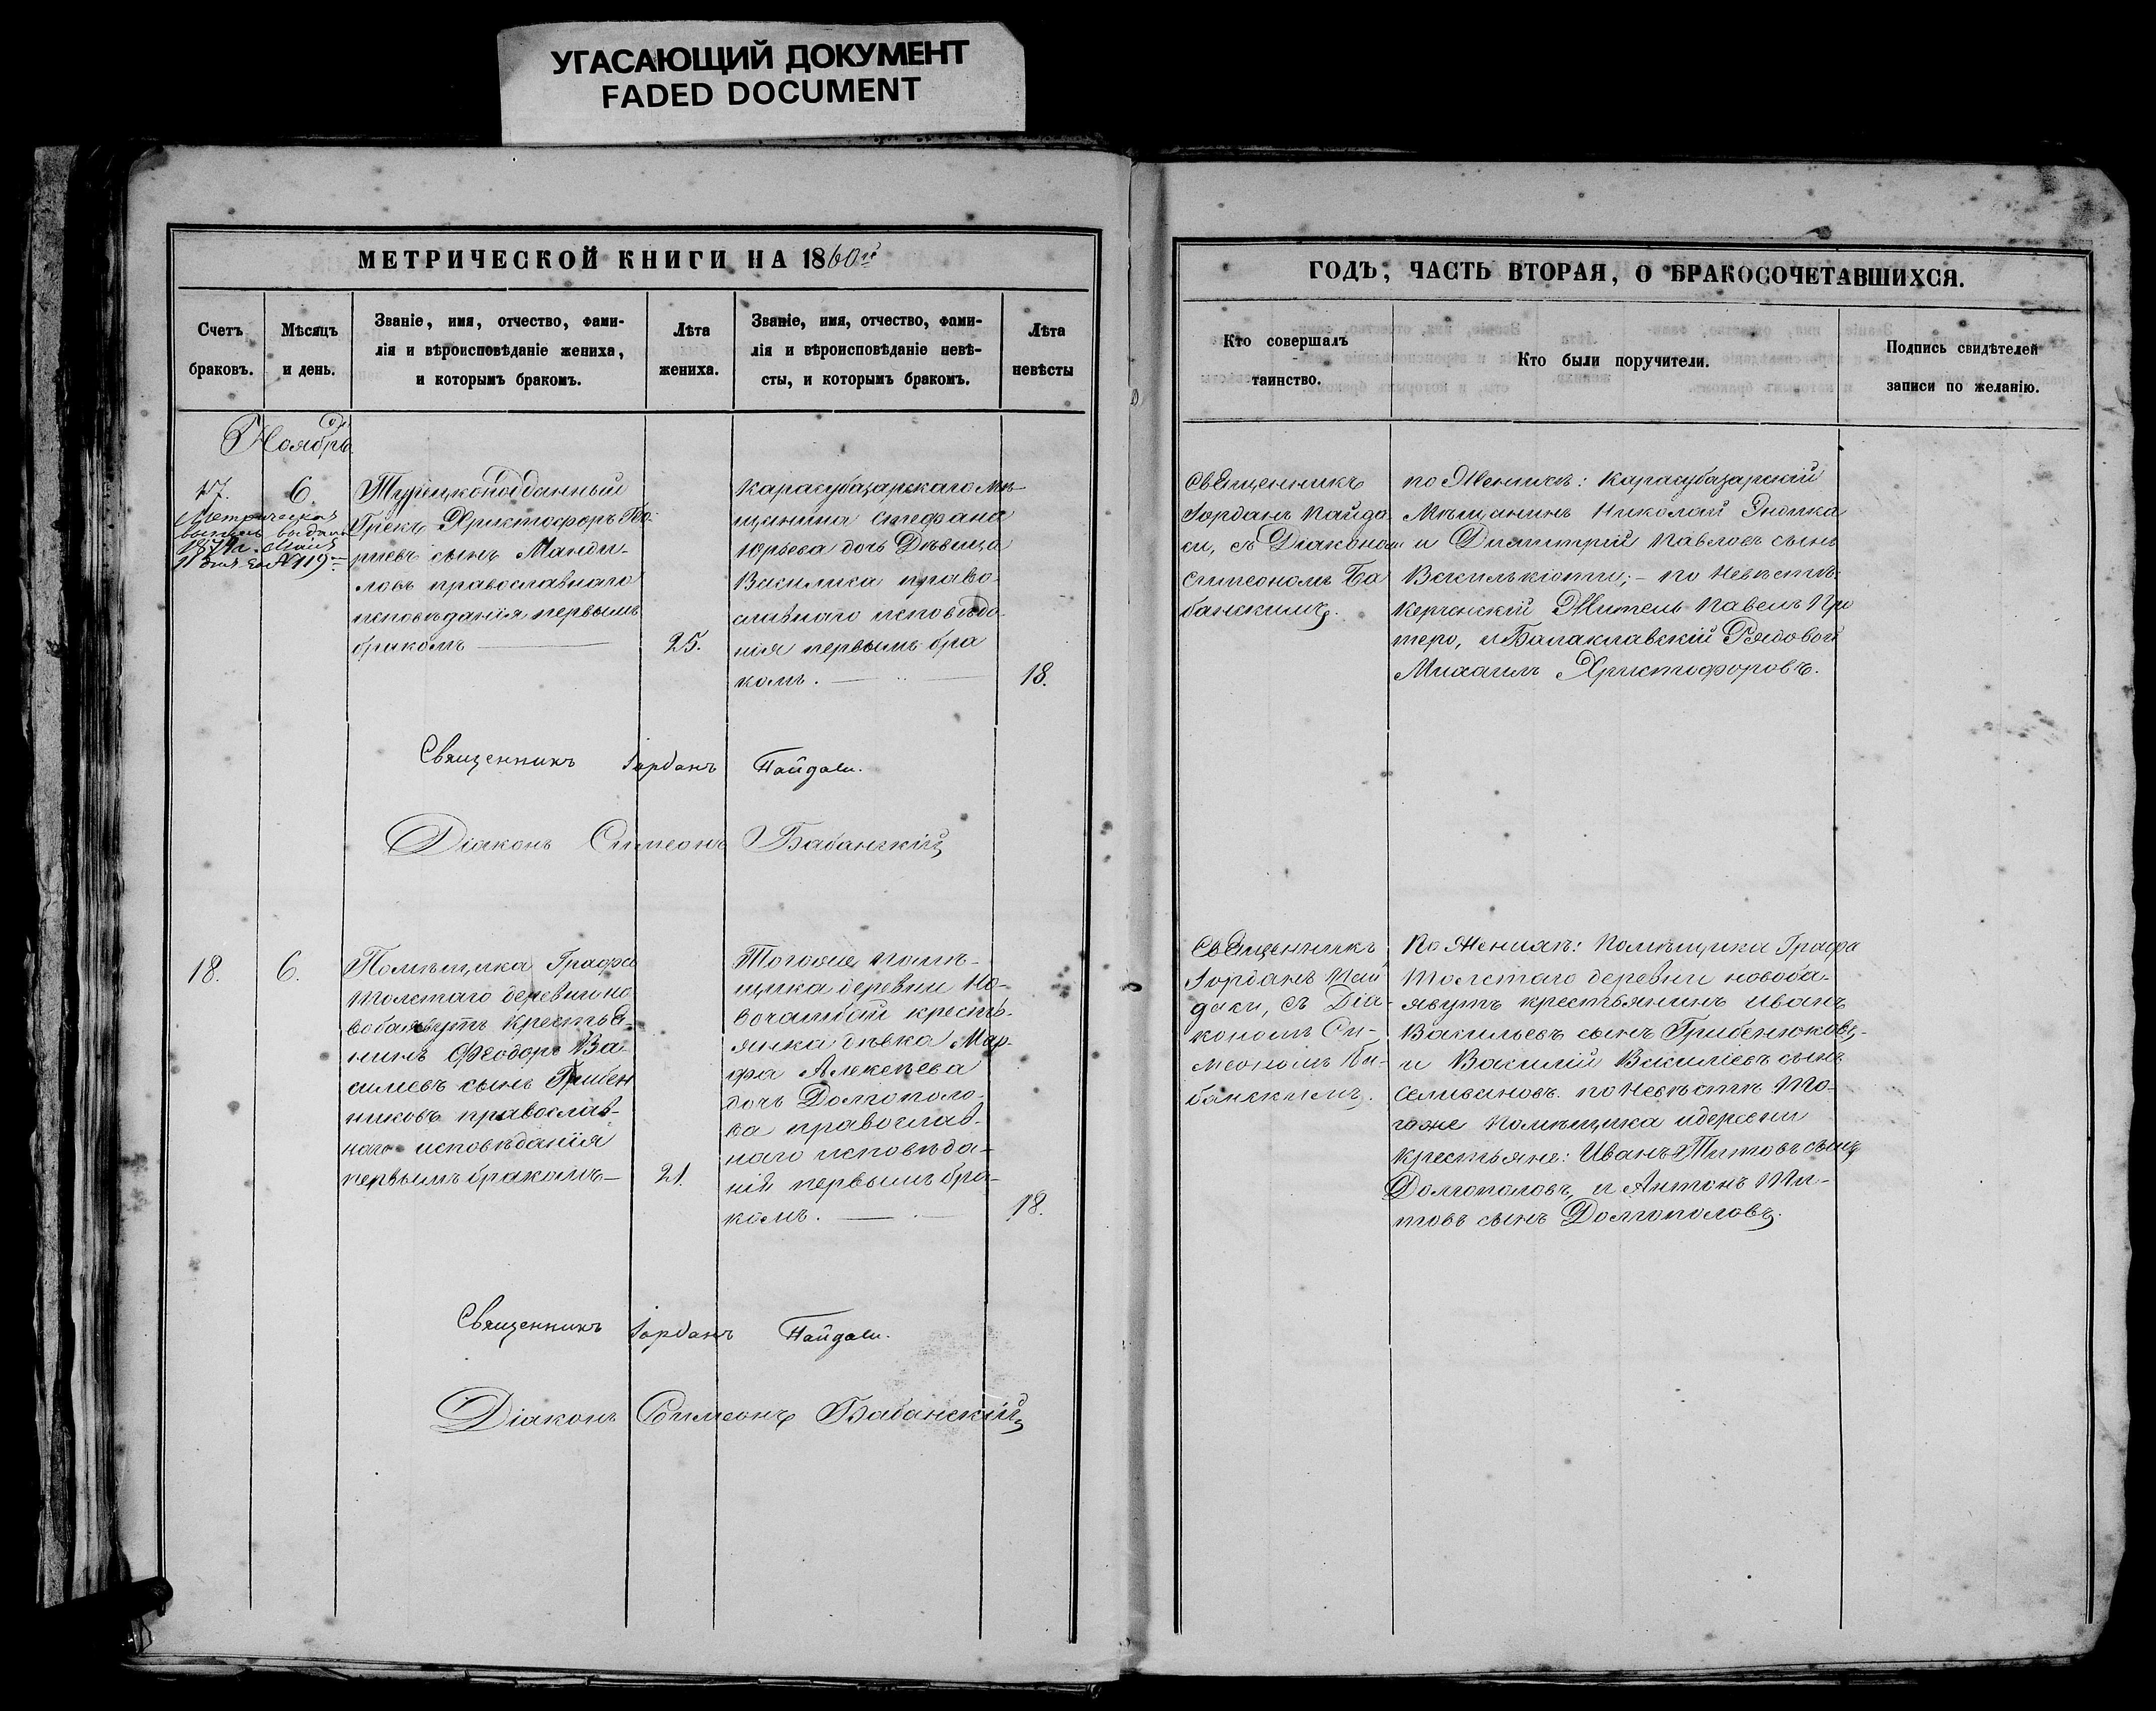 УГАСАЮЩИЙ ДОКУМЕНТ
FADED DOCUMENT
МЕТРИЧЕСКОЙ КНИГИ НА 1860й
Счетъ браковъ.
Мѣсяцъ и день.
Званіе, имя, отчество, фами-
лія и вѣроисповѣданіе жениха,
и которымъ бракомъ.
Лѣта жениха.
Званіе, имя, отчество, фами-
лія и вѣроисповѣданіе невѣ-
сты, и которымъ бракомъ.
Лѣта невѣсты
Ноябрь
17.
6.
Метрическая
выпись выдана
1874 г. Мая
11 дня за № 119
Турецкоподданный
Грекъ Христофоръ Гео-
ргіевъ сынъ Манди-
ловъ православнаго
исповѣданія первымъ
бракомъ
25.
Карасубазарскаго Мѣ-
щанина Стефана
Юрьева дочь Дѣвица
Василика право-
славнаго исповѣда-
нія первымъ бра
комъ.
18.
Священникъ Іорданъ Пайдаси.
Діаконъ Симеонъ Бабанскій
18.
6.
Помѣщика Графа
Толстаго деревни но
вобаявутъ Крестья-
нинъ Феодоръ Ва-
силиевъ сынъ Грибен
никовъ православ-
наго исповѣданія
первымъ бракомъ
21.
Тогоже помѣ-
щика деревни Но-
вочамбай кресть-
янка дѣвка Мар-
фа Алексѣева
дочь Долгополо-
ва православ-
наго исповѣда-
нія первымъ бра-
комъ.
18.
Священникъ Іорданъ Пайдаси.
Діаконъ Симеонъ Бабанскій
ГОДЪ, ЧАСТЬ ВТОРАЯ, О БРАКОСОЧЕТАВШИХСЯ.
Кто совершалъ
таинство.
Кто были поручители.
Подпись свидѣтелей
записи по желанію.
Священникъ
Іорданъ Пайда-
си, съ Діаконом
Симеономъ Ба
банскимъ.
по Женихѣ: Карасубазарскій
Мѣщанинъ Николай
и Димитрій Павловъ сынъ
по Невѣстѣ:
Керченскій Житель Павелъ Про
теро, и Балаклавскій Рядовой
Михаилъ Христофоровъ.
Священникъ
Іорданъ Пай
даси, съ Діа-
кономъ Си-
меономъ Ба-
банскимъ.
По Женихѣ: Помѣщика Графа
Толстаго деревни новоба-
явутъ крестьянинъ Иванъ
Васильевъ сынъ Грибенюковъ,
и Василій Василіевъ сынъ
Селивановъ. по Невѣстѣ То-
гоже Помѣщика и деревни
Крестьяне: Иванъ Титовъ сынъ
Долгополовъ, и Антонъ Ти-
товъ сынъ Долгополовъ.